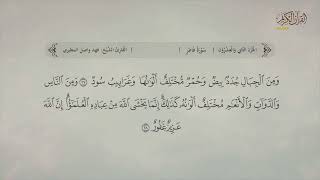 القرآن الكريم
الجزء الثاني والعشرون | سورة فاطر | القارئ الشيخ: فهد واصل المطيري
وَمِنَ ٱلْجِبَالِ جُدَدٌۢ بِيضٌ وَحُمْرٌ مُّخْتَلِفٌ أَلْوَٰنُهَا وَغَرَابِيبُ سُودٌ ۝٢٧ وَمِنَ ٱلنَّاسِ
وَٱلدَّوَآبِّ وَٱلْأَنْعَٰمِ مُخْتَلِفٌ أَلْوَٰنُهُۥ كَذَٰلِكَ ۗ إِنَّمَا يَخْشَى ٱللَّهَ مِنْ عِبَادِهِ ٱلْعُلَمَٰٓؤُا۟ ۗ إِنَّ ٱللَّهَ
عَزِيزٌ غَفُورٌ ۝٢٨